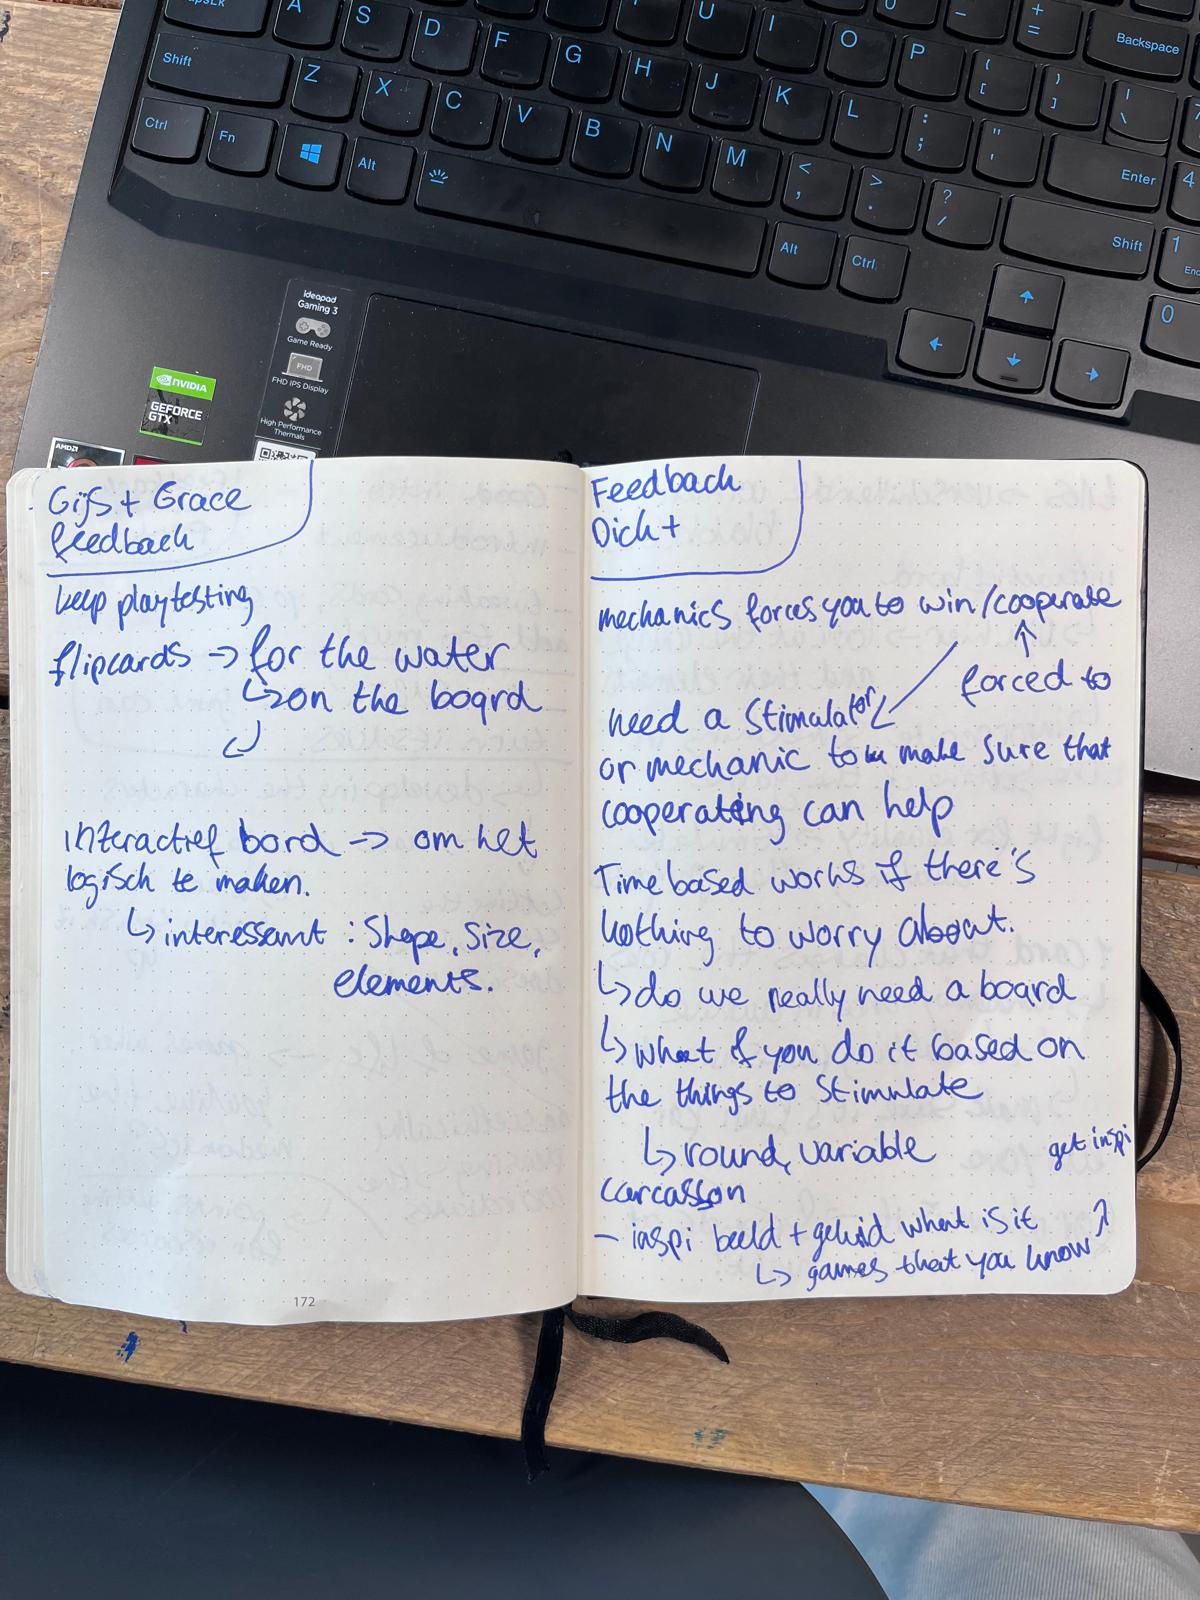 A S D F G H J K L
Shift Z X C V B N M
Ctrl Fn Alt
Backspace
Enter
Shift
Alt Ctrl
U I O P
ideapad
Gaming 3
Game Ready
FHD
FHD IPS Display
High Performance
Thermals
NVIDIA
GEFORCE
GTX
AMD
Gijs + Grace
feedback
keep playtesting
flipcards → for the water
↳ on the board
interactief bord → om het
logisch te maken.
↳ interessant : Shape, Size,
elements.
172
Feedback
Dick +
mechanics forces you to win / cooperate
forced to
need a Stimulator
or mechanic to make sure that
cooperating can help
Time based works if there's
nothing to worry about.
↳ do we really need a board
↳ what if you do it based on
the things to Stimulate
↳ round, variable
get inspi
Carcasson
- inspi beeld + geluid what is it
↳ games that you know